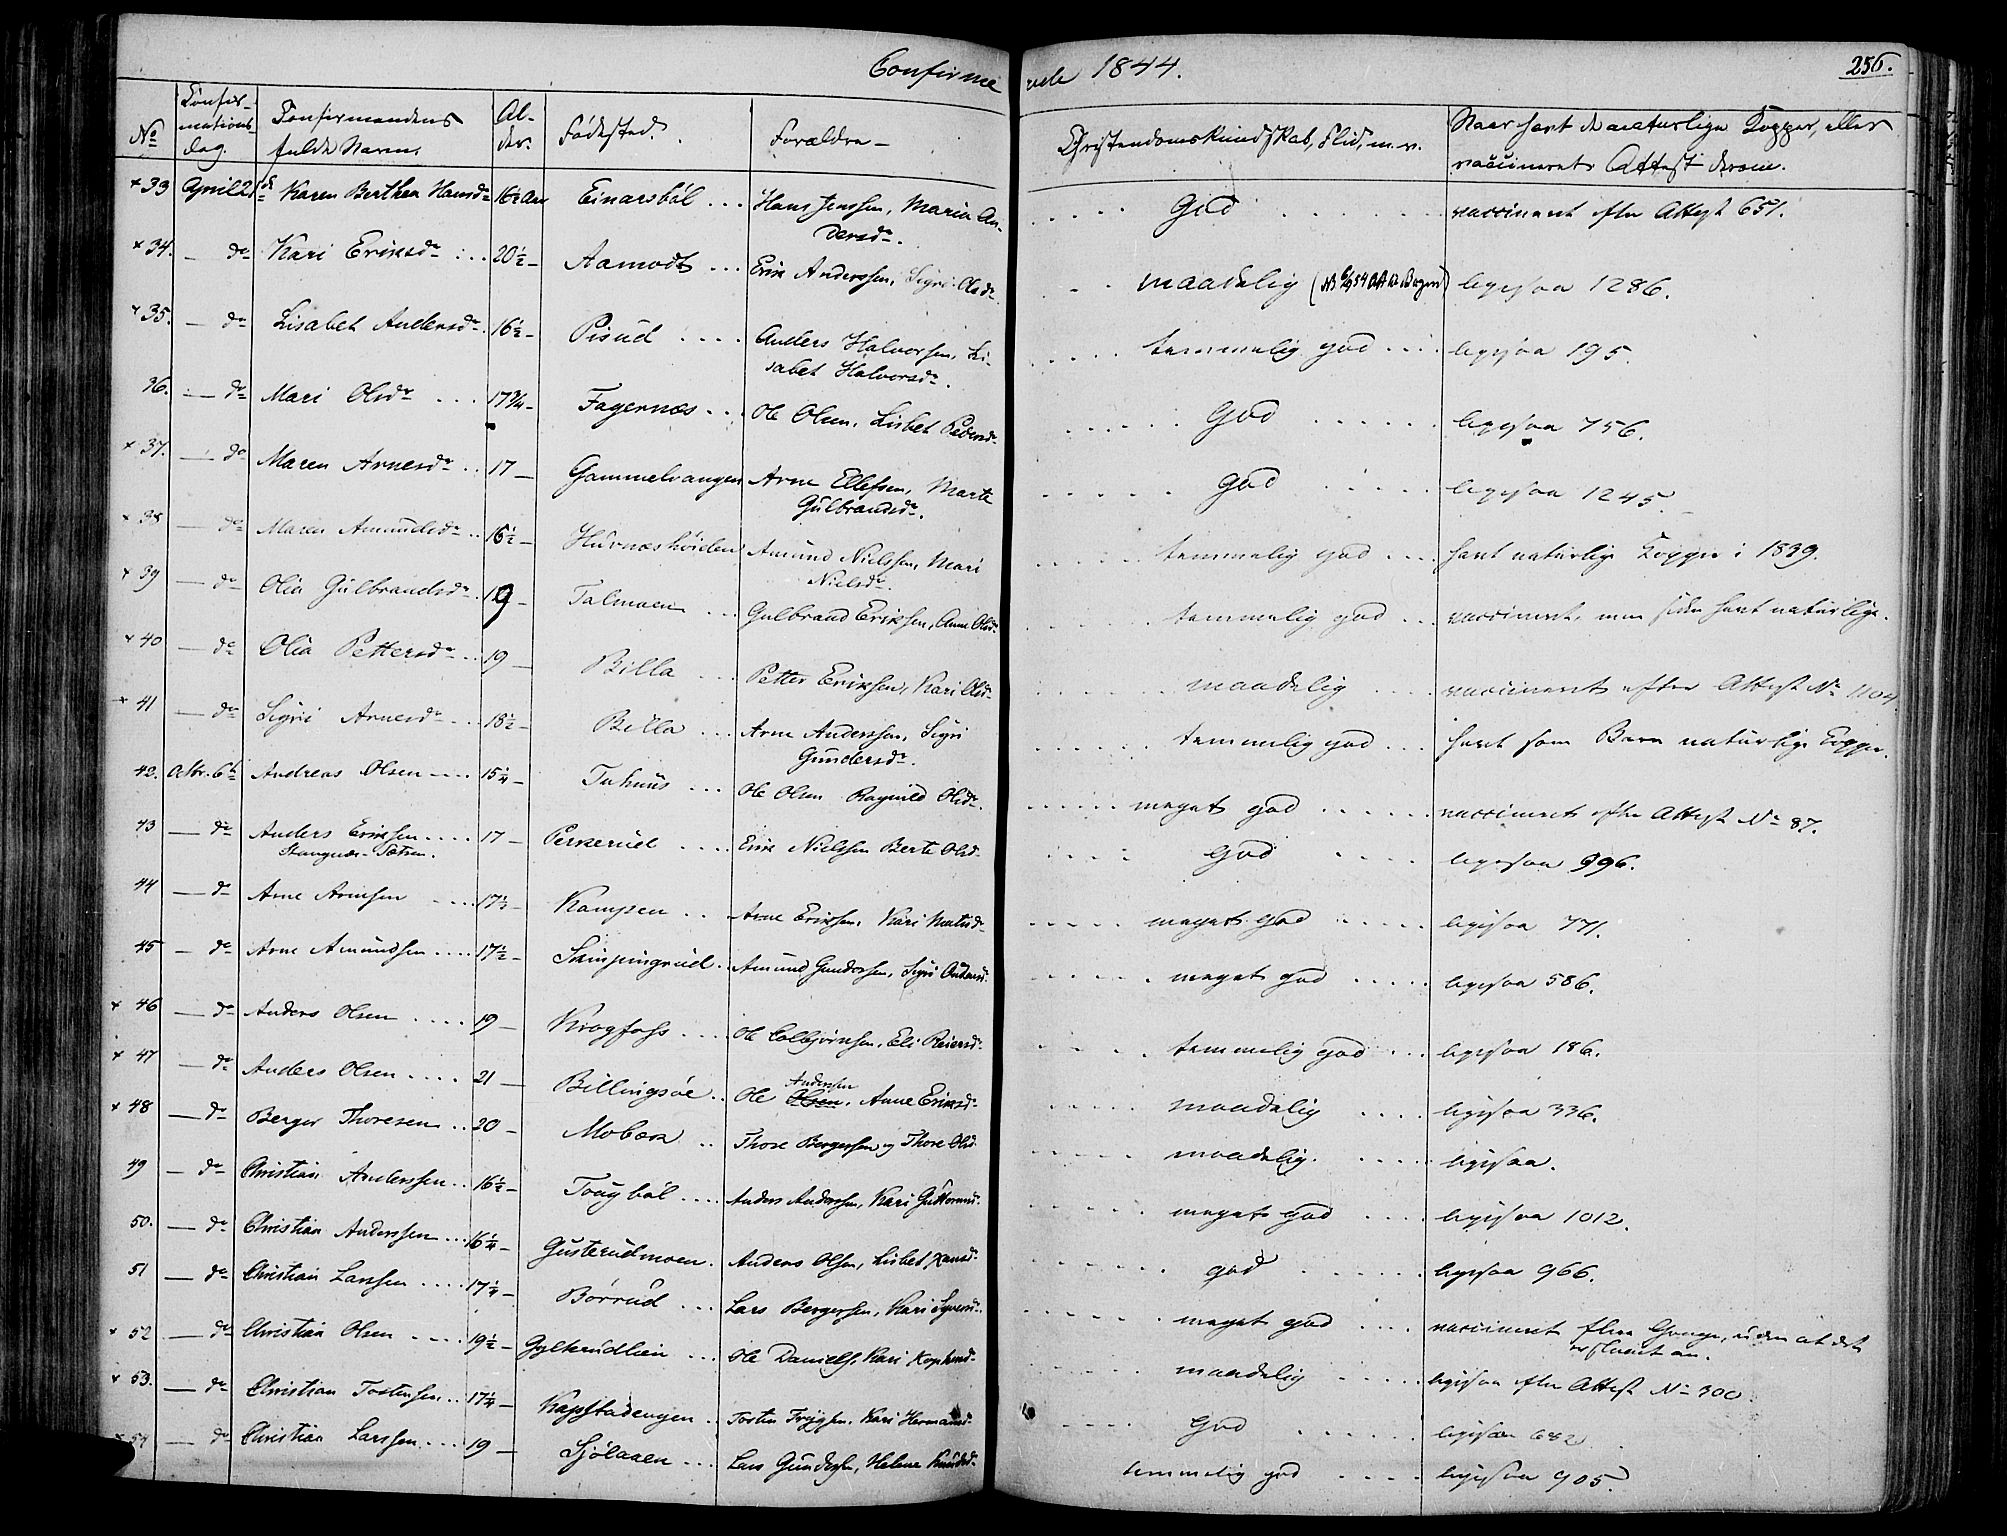 Confirmerede 1844.
256.
No Confirmations dag. Confirmandens fulde Navn. Alder. Fødested. Forældre Christendomskundskab, Flid, m. v. Naar havt de naturlige Kopper, eller vaccineret Attest derom.
+ 33 April 21de Karen Berthea Hansdr 16½ Aar Einarsböl ... Hans Jenssen, Maria Andersdr. God vaccineret efter Attest 651.
+ 34. — do Kari Eriksdr 20½ — Aamodt ... Erik Anderssen, Sigri Olsdr. maadelig ligesaa 1286.
+ 35. — do Lisabet Andersdr. 16½ — Pisud .... Anders Halvorsen, Lisabet Halvorsdr. temmelig god ligesaa 195.
36. — do Mari Olsdr ... 17¾ — Fagernæs ... Ole Olsen, Lisbet Pedersdr God ligesaa 756.
+ 37. — do Maren Arnesdr .. 17 — Gammelvangen Arne Ellefsen, Marte Gulbrandsdr. God ligesaa 1245.
+ 38 — do Maren Amundsdr .. 16½ — Hurnæshöiden Amund Nielssen, Mari Nielsdr. temmelig god havt naturlige Kopper i 1839.
+ 39 — do Olia Gulbrandsdr. 19 — Talmoen ... Gulbrand Eriksen, Anne Olsdr temmelig god vaccineret, men siden havt naturlige.
+ 40 — do Olia Pettersdr ... 19 — Billa ... Petter Eriksen, Kari Olsdr maadelig vaccineret efter Attest No 1104.
+ 41 — do Sigri Arnesdr ... 18½ — Billa ... Arne Anderssen, Sigri Gundersdr. temmelig god havt som Barn naturlige Kopper.
42. Octbr. 6te Andreas Olsen .... 15¼ — Tuhuus ... Ole Olsen Ragnild Olsdr. meget god vaccineret efter Attest No 87.
43 — do Anders Eriksen .... 17 — Perkerud .... Erik Nielssen Berte Olsdr God ligesaa 996.
44 — do Arne Arnesen .... 17½ — Kampen .. Arne Eriksen, Kari meget god ligesaa 771.
45 — do Arne Amundsen .... 17½ — Skinpingrud .. Amund Gundersen, Sigri meget god ligesaa 586.
+ 46 — do Anders Olsen .... 19 — Krogfoss .... Ole Colbjörnsen, Eli Reiersdr. temmelig god ligesaa 186.
+ 47 — do Anders Olsen .... 21 — Billingsöe .. Ole Olsen Anderssen, Anne Eriksdr maadelig ligesaa 336.
+ 48 — do Berger Thoresen .. 20 — Mobæk .. Thore Bergersen og Thore Olsdr maadelig. ligesaa.
49 — do Christian Anderssen .. 16½ — Tougböl .... Anders Anderssen, Kari Guttormsdr meget god ligesaa 1012.
50. — do Christian Anderssen ... 16¼ — Gusterudmoen . Anders Olsen, Lisbet Hansdr god ligesaa 966.
51 — do Christian Larssen .... 17¼ — Börrud ... Lars Bergersen, Kari Syversdr. meget god vaccineret flere Gange, uden at det er slaaet an.
+ 52 — do Christian Olsen .... 19½ — Gylterudlien ... Ole Daniels, Kari maadelig ligesaa efter Attest No 300
+ 53. — do Christian Tostensen .. 17¼ — Kapstadengen . Tosten Kari Hermansdr God ligesaa 682
+ 54 — do Christian Larssen ... 19 — Sjölaaen ... Lars Gundersen, Helene Knudsdr temmelig god ligesaa 905.